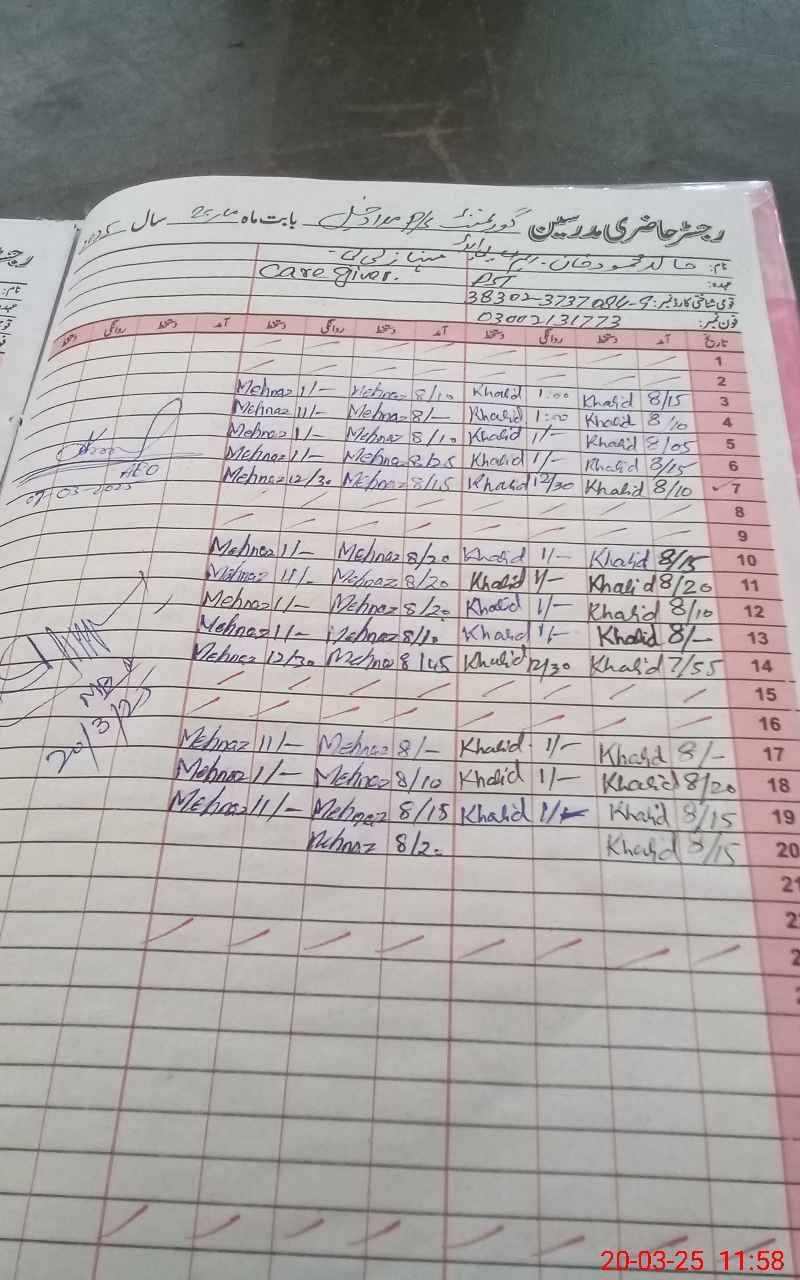 رجسٹر حاضری مدرسین گورنمنٹ P/S بابت ماہ مارچ سال 2025
نام: خالد محمود خان
عہدہ: PST Care giver.
قومی شناختی کارڈ نمبر: 38302-3737084-9
فون نمبر: 03002131773
تاریخ آمد دستخط روانگی دستخط آمد دستخط روانگی دستخط آمد دستخط روانگی دستخط
1
2
3 8/15 Khalid 1:00 Khalid 8/10 Mehnaz 1/- Mehnaz
4 8/10 Khalid 1:00 Khalid 8/- Mehnaz 1/- Mehnaz
5 8/05 Khalid 1/- Khalid 8/10 Mehnaz 1/- Mehnaz
6 8/15 Khalid 1/- Khalid 8:05 Mehnaz 1/- Mehnaz
7 8/10 Khalid 12/30 Khalid 8/15 Mehnaz 12/30 Mehnaz
AEO
07-03-2025
8
9
10 8/15 Khalid 1/- Khalid 8/20 Mehnaz 1/- Mehnaz
11 8/20 Khalid 1/- Khalid 8/20 Mehnaz 1/- Mehnaz
12 8/10 Khalid 1/- Khalid 8/20 Mehnaz 1/- Mehnaz
13 8/- Khalid 1/- Khalid 8/10 Mehnaz 1/- Mehnaz
14 7/55 Khalid 12/30 Khalid 8/45 Mehnaz 12/30 Mehnaz
15
16
20/3/25
17 8/- Khalid 1/- Khalid 8/- Mehnaz 1/- Mehnaz
18 8/20 Khalid 1/- Khalid 8/10 Mehnaz 1/- Mehnaz
19 8/15 Khalid 1/- Khalid 8/15 Mehnaz 1/- Mehnaz
20 8/15 Khalid 8/20 Mehnaz
21
20-03-25 11:58